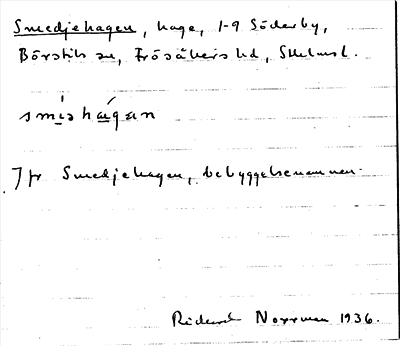 Smedjehagen, hage, 1-9 Söderby,
Börstils sn, Frösåkers hd, Sthlms l.
smishagan
Jfr Smedjehagen, bebyggelsenamnen.
Rickard Norrman 1936.